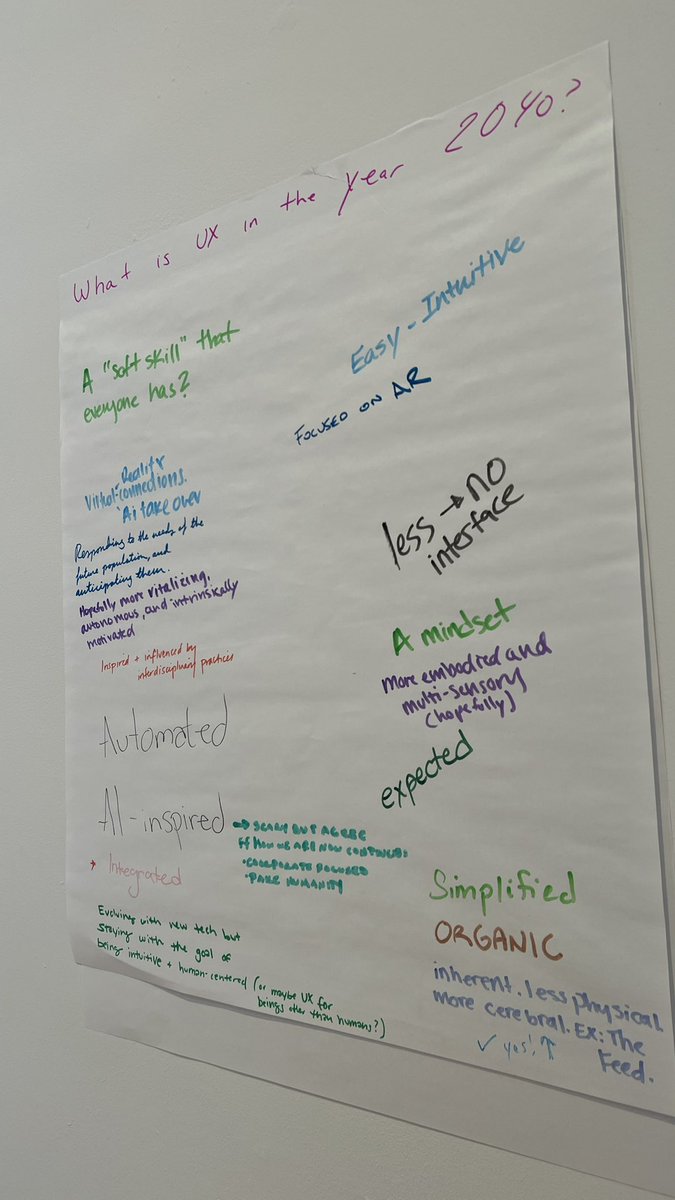 What is UX in the year 2040?
A "soft skill" that
everyone has?
Easy - Intuitive
FOCUSED ON AR
Reality
Virtual-connections.
Ai take over
less → no
interface
Responding to the needs of the
future population, and
anticipating them.
Hopefully more vitalizing,
autonomous, and intrinsically
motivated
Inspired + influenced by
interdisciplinary practices
A mindset
more embodied and
multi-sensory
(hopefully)
Automated
expected
AI-inspired
→ SCARY BUT AGREE
if HOW WE ARE NOW CONTINUES:
• CORPORATE FOCUSED
• FAKE HUMANITY
→ Integrated
Simplified
ORGANIC
Evolving with new tech but
staying with the goal of
being intuitive + human-centered (or maybe UX for
beings other than humans?)
inherent. less physical
more cerebral. Ex: The
Feed.
✓ yes! ↑